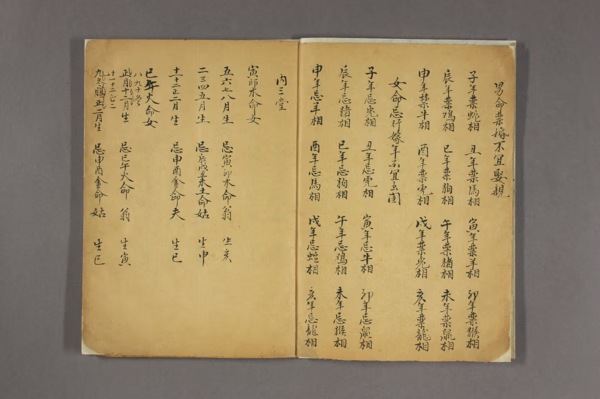 男命禁婚不宜娶親
子年禁蛇相 丑年禁馬相 寅年禁羊相 卯年禁猴相
辰年禁鷄相 巳年禁狗相 午年禁猪相 未年禁鼠相
申年禁牛相 酉年禁虎相 戌年禁兎相 亥年禁龍相
女命忌行嫁年不宜出閣
子年忌兎相 丑年忌虎相 寅年忌牛相 卯年忌鼠相
辰年忌猪相 巳年忌狗相 午年忌鷄相 未年忌猴相
申年忌羊相 酉年忌馬相 戌年忌蛇相 亥年忌龍相
内三堂
寅卯木命女
五六七八月生 忌寅卯木命翁 生亥
二三四五月生 忌辰戌丑未土命姑 生申
十一十二正二月生 忌申酉金命夫 生巳
巳午火命女
八九十 生 忌巳午火命翁 生寅
月生 忌申酉金命姑 生巳